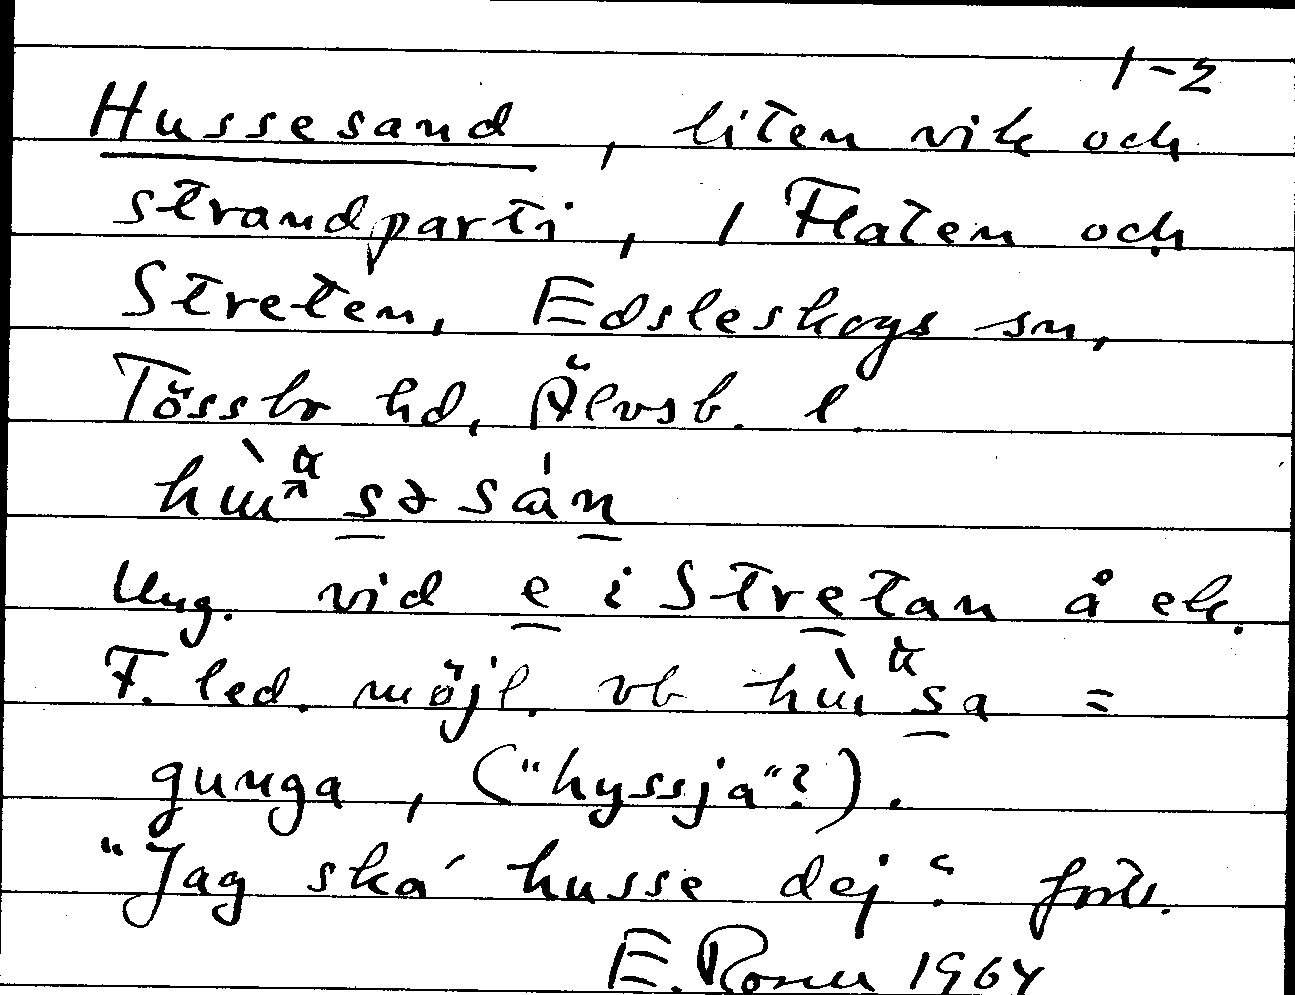 1-2
Hussesand, liten vik och
strandparti, / Flaten och
Streten, Edsleskogs sn,
Tössbo hd, Älvsb. l.
sə sán
Ung. vid e i Stretan å ek.
F. led. möjl. vb sa =
gunga, ("hyssja"?).
"Jag ska' husse dej". forts.
E. Rosell 1964